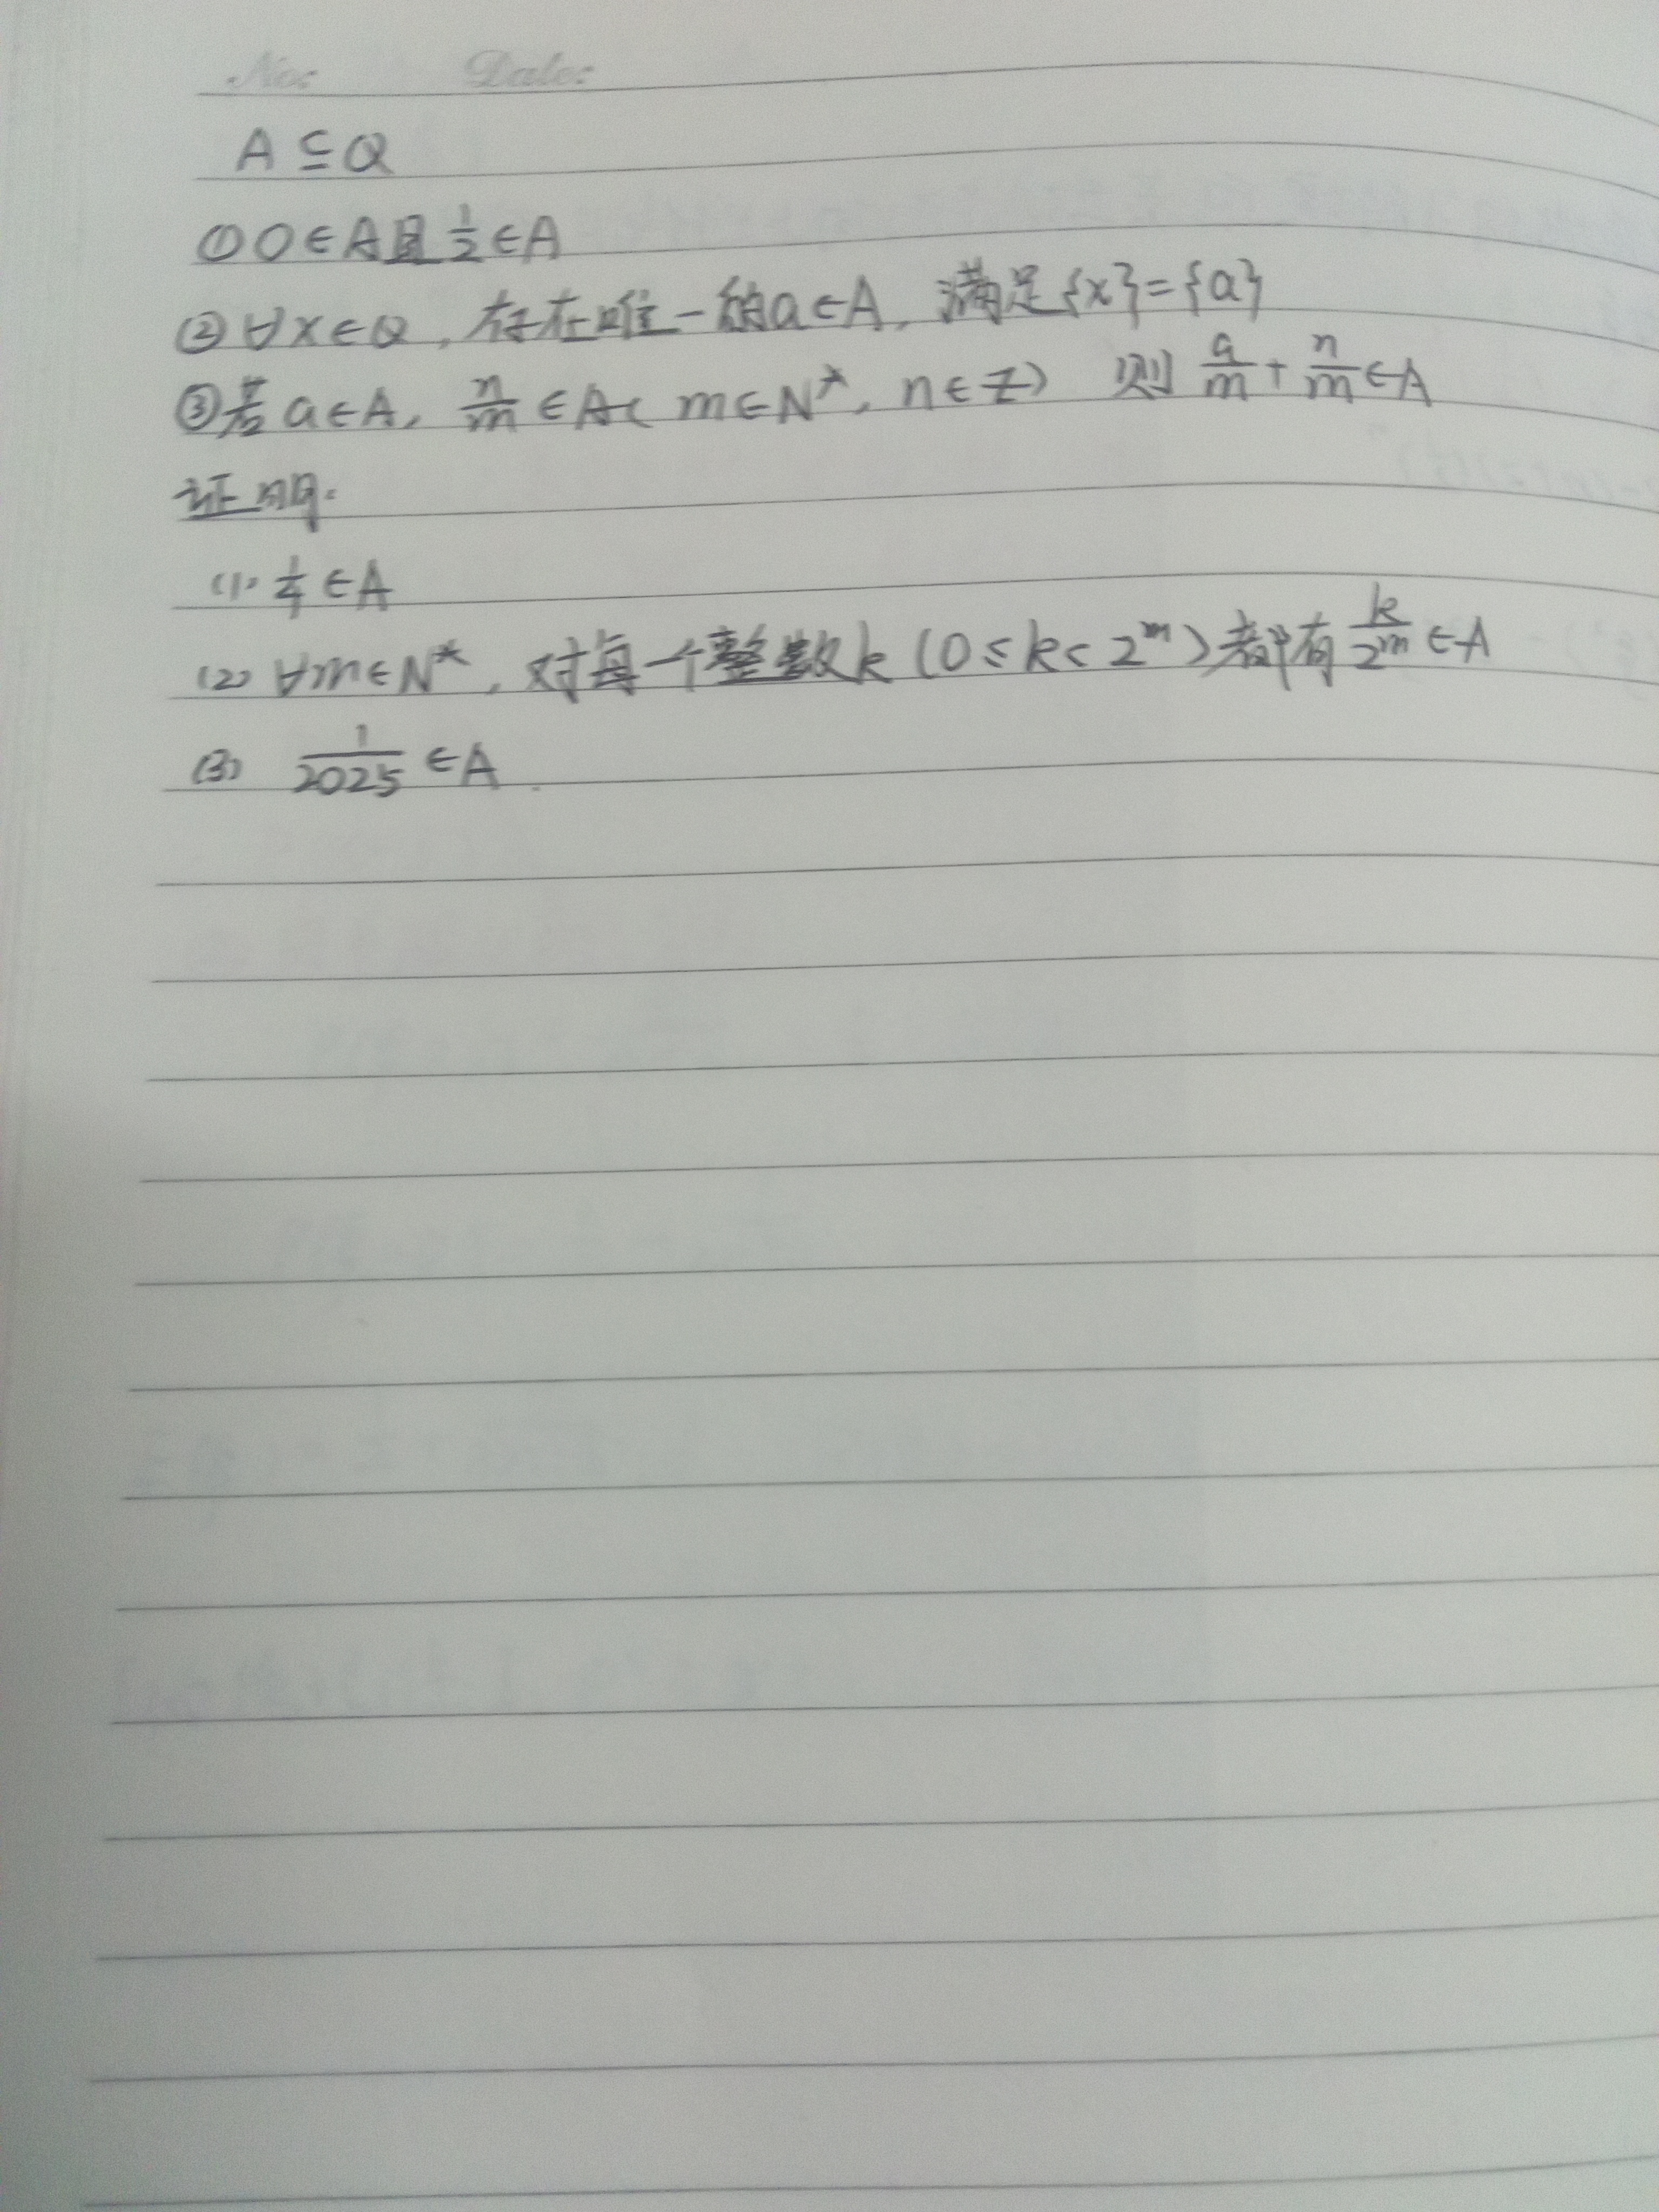 No: Date:
A ⊆ Q
① 0∈A且1/2∈A
② ∀x∈Q, 存在唯一的a∈A, 满足{x}={a}
③若a∈A, n/m∈A( m∈N*, n∈Z) 则 a/m + n/m ∈A
证明:
(1). 1/4 ∈A
(2) ∀m∈N*, 对每一个整数k (0≤k<2^m)都有 k/2^m ∈A
(3) 1/2025 ∈A.